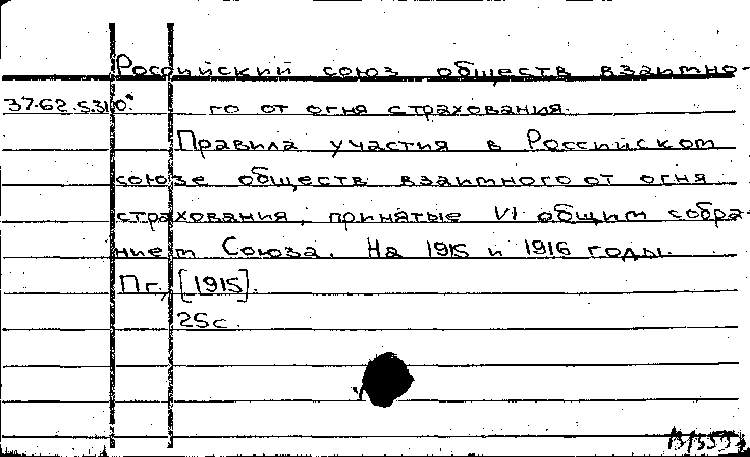 Российский союз обществ взаимно-
37-62.5310° го от огня страхования.
Правила участия в Российском
союзе обществ взаимного от огня
страхования, принятые VI общим собра-
нием Союза. На 1915 и 1916 годы.
Пг., [1915].
25с.